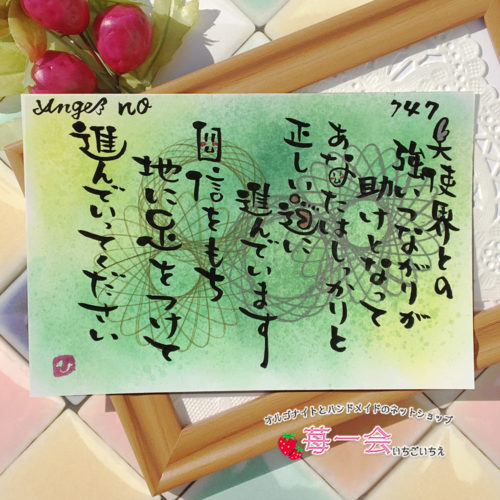 Angel no
747
天使界との
強いつながりが
助けとなって
あなたはしっかりと
正しい道に
進んでいます
自信をもち
地に足をつけて
進んでいってください
オルゴナイトとハンドメイドのネットショップ
苺一会いちごいちえ